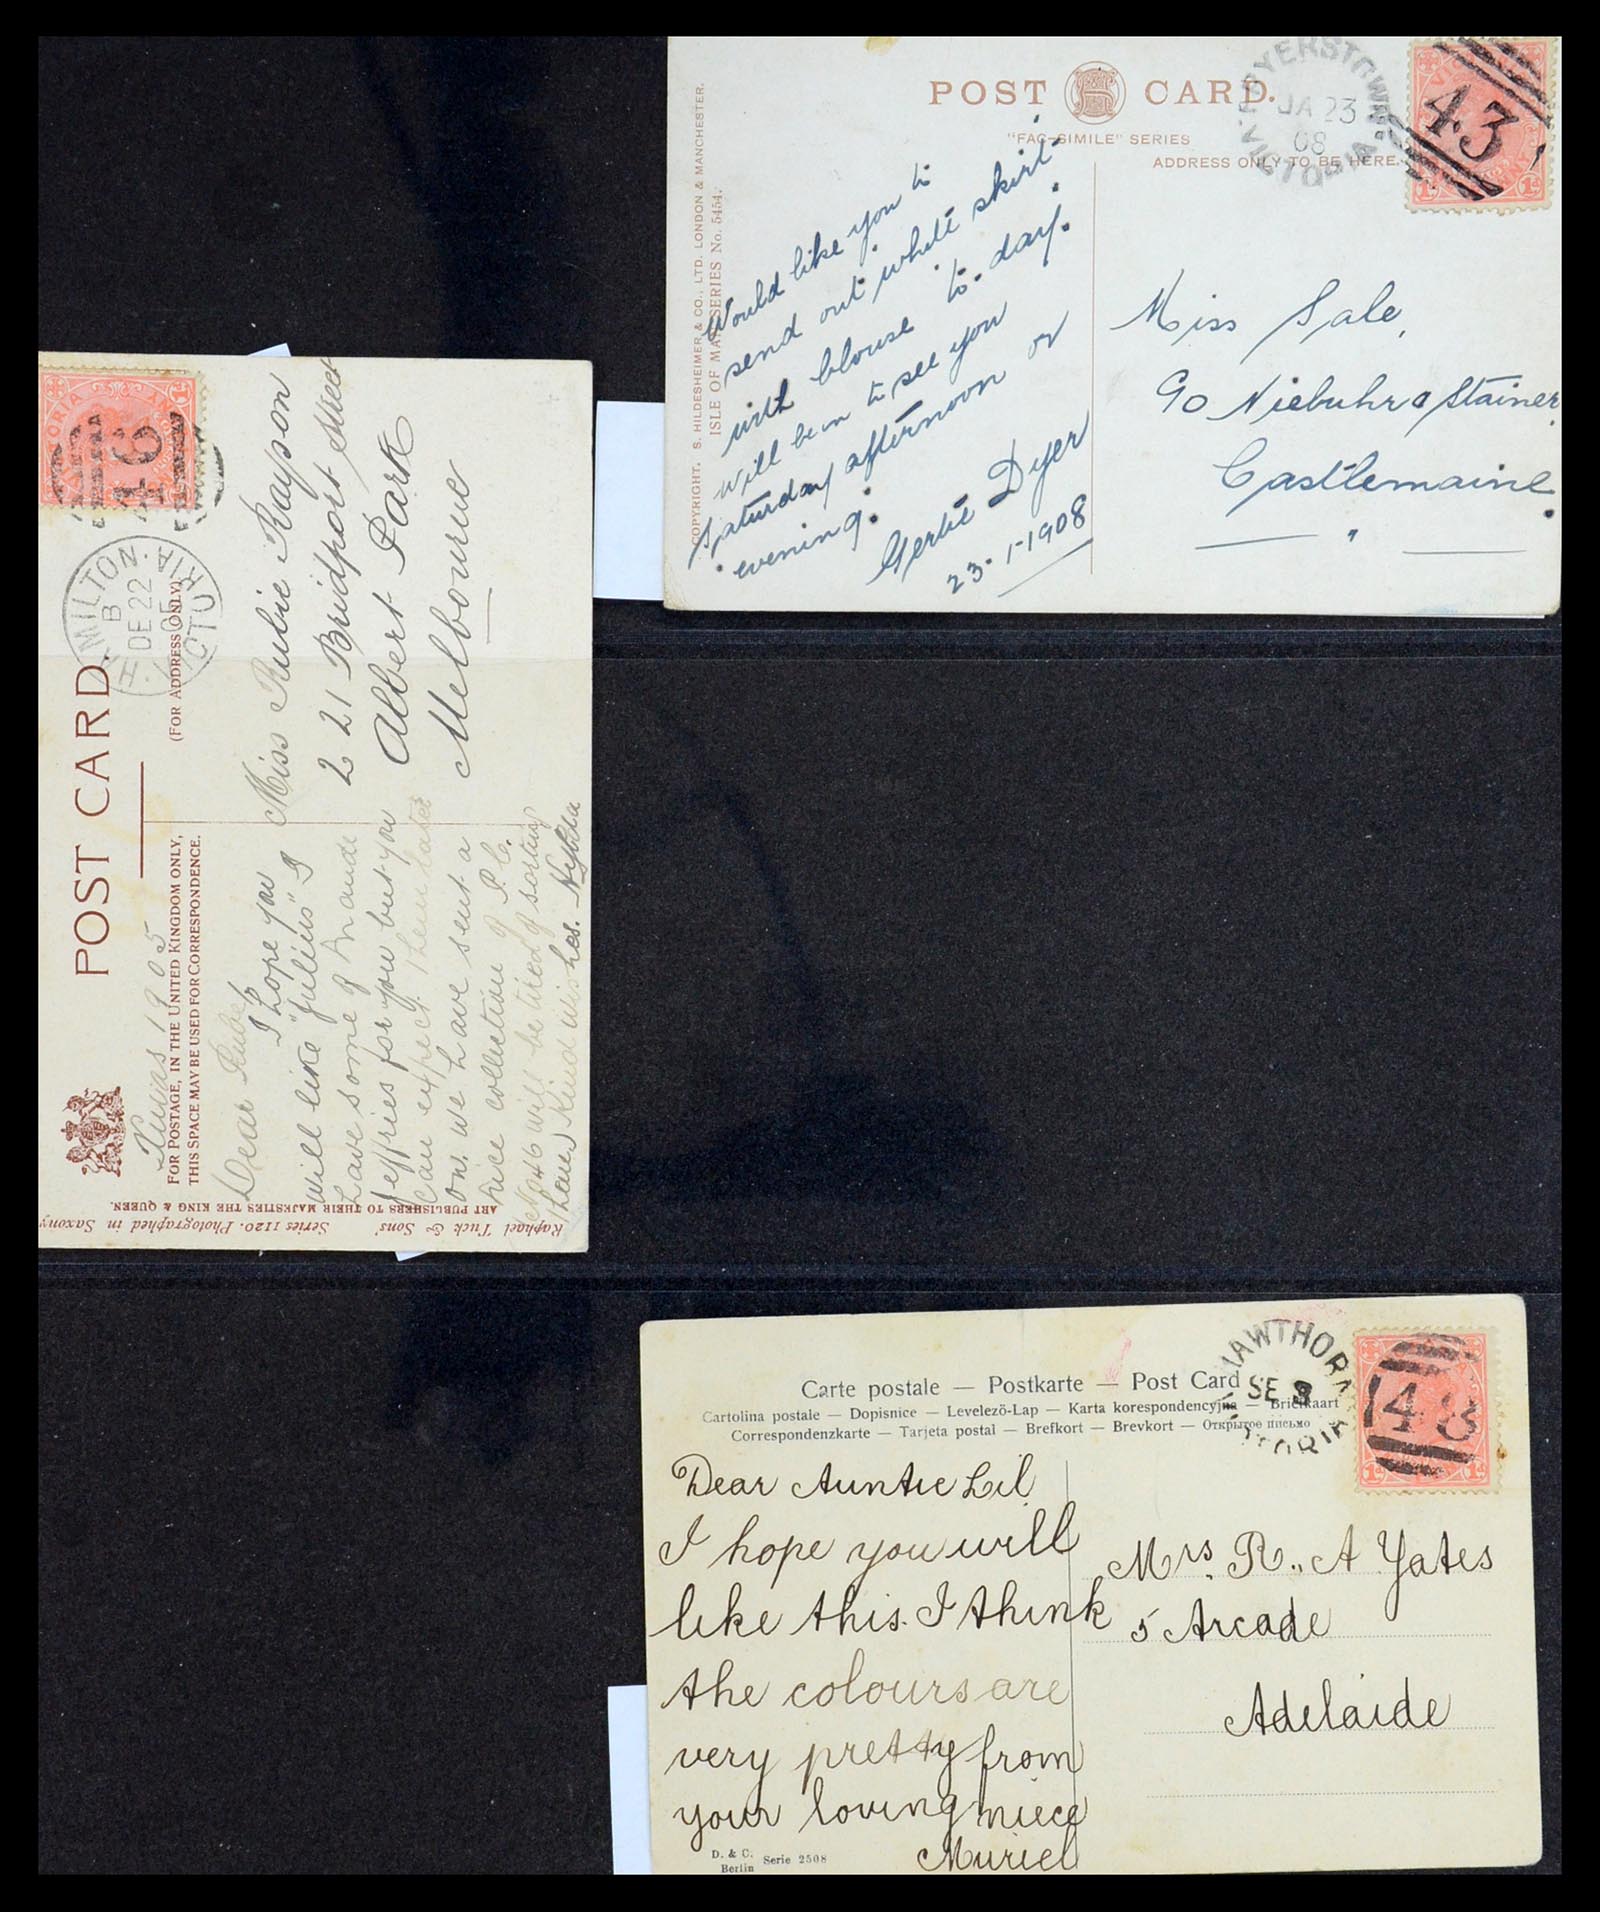 POST CARD.
"FAC-SIMILE" SERIES
ADDRESS ONLY TO BE HERE.
COPYRIGHT. S. HILDESHEIMER & CO., LTD. LONDON & MANCHESTER.
ISLE OF MAN SERIES No. 5454.
FRYERSTOWN
JA 23
08
VICTORIA
43
Would like you to
send out white skirt
with blouse to-day.
Will be in to see you
Saturday afternoon or
evening.
Gertie Dyer
23-1-1908
Miss Sale,
Co Niebuhr & Stainer
Castlemaine
POST CARD.
(FOR ADDRESS ONLY)
FOR POSTAGE, IN THE UNITED KINGDOM ONLY,
THIS SPACE MAY BE USED FOR CORRESPONDENCE.
HAMILTON
B
DE 22
05
VICTORIA
46
Miss Rubie Rayson
221 Bridport Street
Albert Park
Melbourne
Xmas 1905
Dear Rube
I hope you
will like "Julius" I
have some of Maude
Jeffries for you but you
can expect them later
on. we have sent a
nice collection of P.C.
will be tired of sorting
them Kind wishes.
Raphael Tuck & Sons' Series 1120. Photographed in Saxony
ART PUBLISHERS TO THEIR MAJESTIES THE KING & QUEEN.
Carte postale — Postkarte — Post Card
Cartolina postale — Dopisnice — Levelező-Lap — Karta korespondencyjna — Briefkaart
Correspondenzkarte — Tarjeta postal — Brefkort — Brevkort — Открытое письмо
HAWTHORN
SE
VICTORIA
48
Dear Auntie Lil
I hope you will
like this. I think
the colours are
very pretty from
your loving niece
Muriel
Mrs. R., A Yates
5 Arcade
Adelaide
D. & C.
Berlin Serie 2508